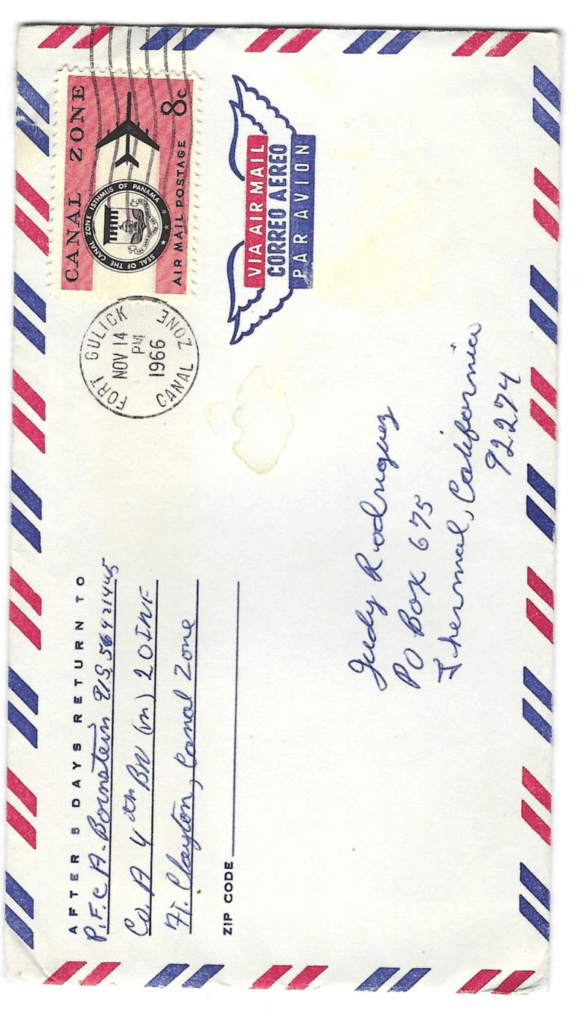 AFTER 5 DAYS RETURN TO
P.F.C A. Bornstein U.S. 56421445
Co A 4th BN (m) 20 INF
Ft. Clayton, Canal Zone
ZIP CODE
FORT GULICK
NOV 14
PM
1966
CANAL ZONE
CANAL ZONE
8c
SEAL OF THE CANAL ZONE ISTHMUS OF PANAMA
AIR MAIL POSTAGE
VIA AIR MAIL
CORREO AEREO
PAR AVION
Judy Rodriguez
PO Box 675
Thermal, California
92274